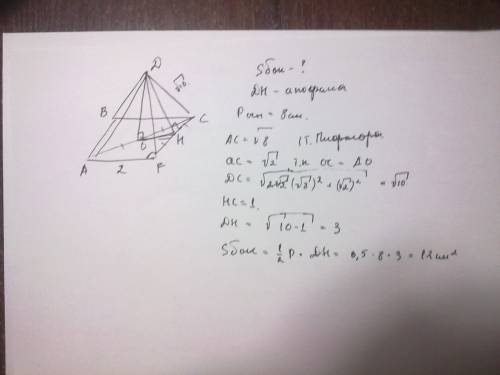 D
√10
B
C
O
H
A
2
F
Sбок - ?
DH - апофема
Pосн = 8 см.
AC = √8 (т. Пифагора
OC = √2 т.к OC = AO
(√8)² + (√2)² = √10
HC = 1.
DH = √10 - 1 = 3
Sбок = ½ P · DH = 0,5 · 8 · 3 = 12 см²